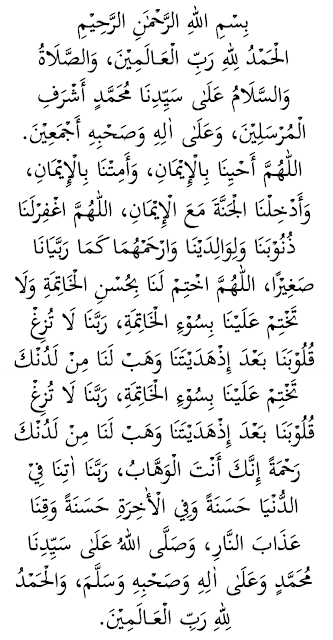 بِسْمِ اللهِ الرَّحْمٰنِ الرَّحِيْمِ
الْحَمْدُ لِلهِ رَبِّ الْعَـالَمِيْنَ، وَالصَّلَاةُ
وَالسَّلَامُ عَلٰى سَيِّدِنَا مُحَمَّدٍ أَشْرَفِ
الْمُرْسَلِيْنَ، وَعَلٰى اٰلِهِ وَصَحْبِهِ أَجْمَعِيْنَ.
اللّٰهُمَّ أَحْيِنَا بِالْإِيْمَانِ، وَأَمِتْنَا بِالْإِيْمَانِ،
وَأَدْخِلْنَا الْجَنَّةَ مَعَ الْإِيْمَانِ، اللّٰهُمَّ اغْفِرْلَنَا
ذُنُوْبَنَا وَلِوَالِدَيْنَا وَارْحَمْهُمَا كَمَا رَبَّيَانَا
صَغِيْرًا، اللّٰهُمَّ اخْتِمْ لَنَا بِحُسْنِ الْخَاتِمَةِ وَلَا
تَخْتِمْ عَلَيْنَا بِسُوْءِ الْخَاتِمَةِ، رَبَّنَا لَا تُزِغْ
قُلُوْبَنَا بَعْدَ إِذْهَدَيْتَنَا وَهَبْ لَنَا مِنْ لَدُنْكَ
تَخْتِمْ عَلَيْنَا بِسُوْءِ الْخَاتِمَةِ، رَبَّنَا لَا تُزِغْ
قُلُوْبَنَا بَعْدَ إِذْهَدَيْتَنَا وَهَبْ لَنَا مِنْ لَدُنْكَ
رَحْمَةً إِنَّكَ أَنْتَ الْوَهَّابُ، رَبَّنَا اٰتِنَا فِيْ
الدُّنْيَا حَسَنَةً وَفِي الْأٰخِرَةِ حَسَنَةً وَقِنَا
عَذَابَ النَّارِ، وَصَلَّى اللهُ عَلٰى سَيِّدِنَا
مُحَمَّدٍ وَعَلٰى اٰلِهِ وَصَحْبِهِ وَسَلَّمَ، وَالْحَمْدُ
لِلهِ رَبِّ الْعَـالَمِيْنَ.